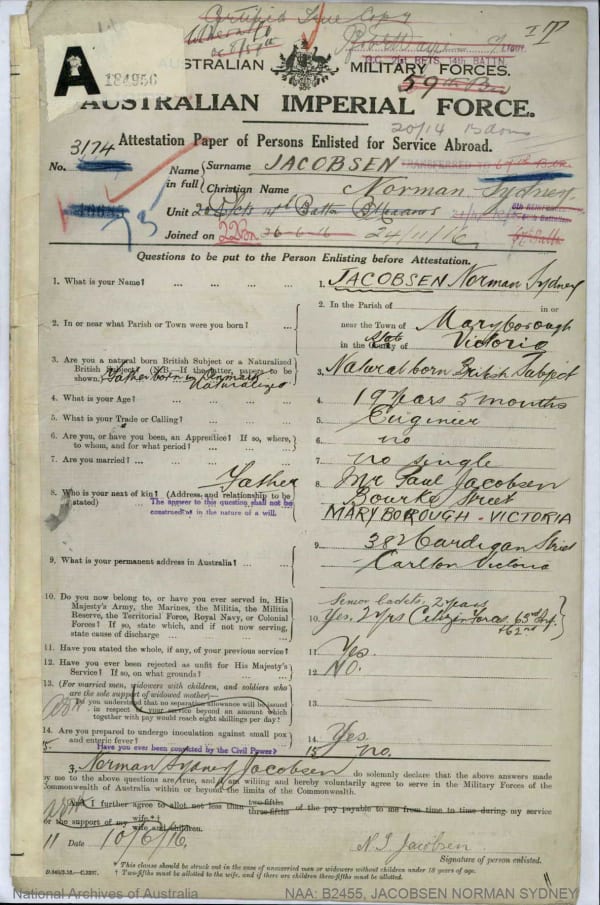 Certified True Copy
AUSTRALIAN MILITARY FORCES.
A
184956
59th Bn
AUSTRALIAN IMPERIAL FORCE.
20/14 Bdons
Attestation Paper of Persons Enlisted for Service Abroad.
No. 3174
Name in full
Surname JACOBSEN
TRANSFERRED TO
Christian Name Norman Sydney
Unit
Joined on 26-6-16 24/11/16
Questions to be put to the Person Enlisting before Attestation.
1. What is your Name? ... ... ... ... 1. JACOBSEN Norman Sydney
2. In or near what Parish or Town were you born? ... 2. In the Parish of in or
near the Town of Maryborough
in the County of State Victoria
3. Are you a natural born British Subject or a Naturalized
British Subject? (N.B.—If the latter, papers to be
shown.) Father born in Denmark
Naturalized
3. Natural born British Subject
4. What is your Age? ... 4. 19 years 5 months
5. What is your Trade or Calling? ... 5. Engineer
6. Are you, or have you been, an Apprentice? If so, where,
to whom, and for what period? ... 6. no
7. Are you married? ... 7. no single
8. Who is your next of kin? (Address and relationship to be
stated) The answer to this question shall not be
construed as in the nature of a will.
Father
8. Mr Paul Jacobsen
Bourke Street
MARYBOROUGH - VICTORIA
9. What is your permanent address in Australia? ... 9. 382 Cardigan Street
Carlton Victoria
10. Do you now belong to, or have you ever served in, His
Majesty's Army, the Marines, the Militia, the Militia
Reserve, the Territorial Force, Royal Navy, or Colonial
Forces? If so, state which, and if not now serving,
state cause of discharge ...
Senior Cadets, 2 years
10. Yes, 2 yrs Citizen Forces, 63rd Inf.
+ 62nd "
11. Have you stated the whole, if any, of your previous service? 11. Yes.
12. Have you ever been rejected as unfit for His Majesty's
Service? If so, on what grounds? ... 12. No.
13. (For married men, widowers with children, and soldiers who
are the sole support of widowed mother)—
Do you understand that no separation allowance will be issued
in respect of your service beyond an amount which
together with pay would reach eight shillings per day? 13.
14. Are you prepared to undergo inoculation against small pox
and enteric fever? ... 14. Yes.
15. Have you ever been convicted by the Civil Power? 15 no.
I, Norman Sydney Jacobsen do solemnly declare that the above answers made
by me to the above questions are true, and I am willing and hereby voluntarily agree to serve in the Military Forces of the
Commonwealth of Australia within or beyond the limits of the Commonwealth.
*And I further agree to allot not less than two-fifths three-fifths of the pay payable to me from time to time during my service
for the support of my wife*†
wife and children.
Date 10/6/16.
N. S. Jacobsen.
Signature of person enlisted.
* This clause should be struck out in the case of unmarried men or widowers without children under 18 years of age.
† Two-fifths must be allotted to the wife, and if there are children three-fifths must be allotted.
National Archives of Australia
NAA: B2455, JACOBSEN NORMAN SYDNEY